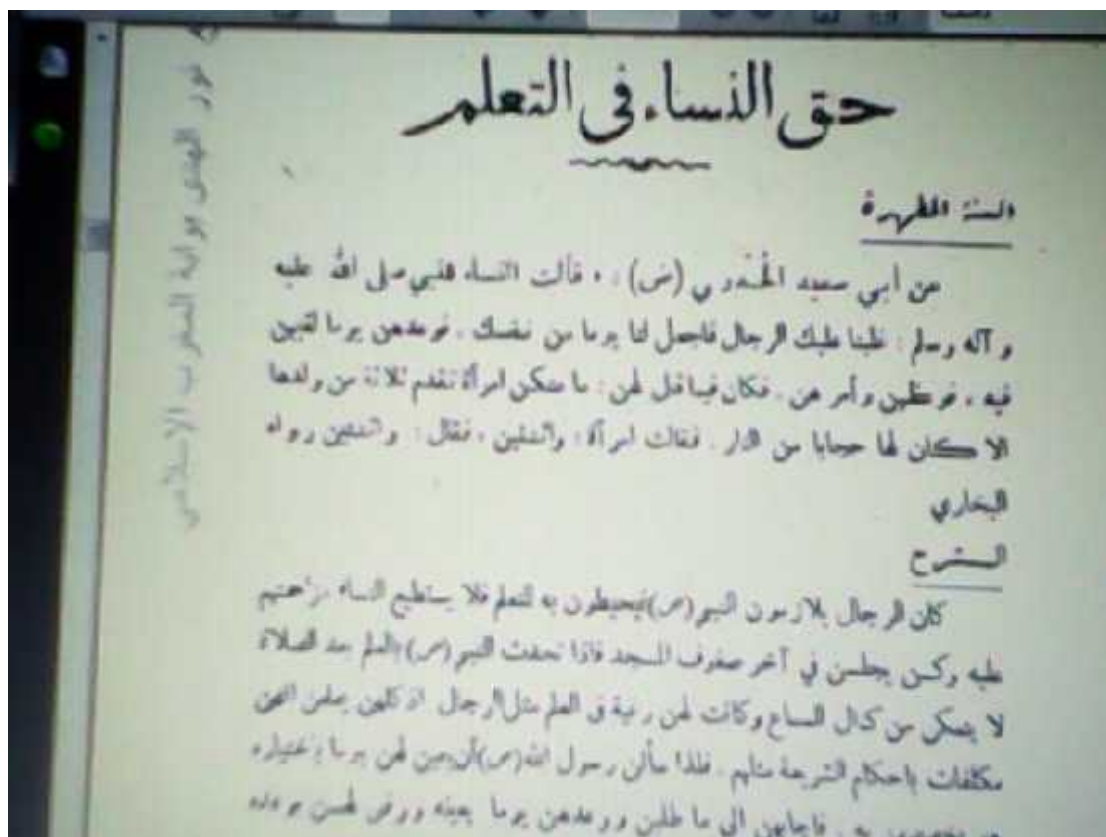 حق النساء في التعلم
السنة المطهرة
عن أبي سعيد الخدري (ض) : « قالت النساء للنبي صلى الله عليه
و آله وسلم : غلبنا عليك الرجال فاجعل لنا يوما من نفسك . فوعدهن يوما لقيهن
فيه ، فوعظهن وأمر هن . فكان فيما قال لهن : ما منكن امرأة تقدم ثلاثة من ولدها
الا كان لها حجابا من النار . فقالت امرأة : واثنتين ، فقال : واثنتين رواه
البخاري
الشرح
كان الرجال يلازمون النبي (ص) فيحيطون به للتعلم فلا يستطيع النساء مزاحمتهم
عليه وكن يجلسن في آخر صفوف المسجد فاذا تحدث النبي (ص) بالعلم بعد الصلاة
لا يتمكن من كمال السماع وكانت لهن رغبة في العلم مثل الرجال اذ كلهن يعلمن انهن
مكلفات باحكام الشريعة مثلهم . فلذا سألن رسول الله (ص) أن يعين لهن يوما باختياره
به . فاجابهن الى ما طلبن ووعدهن يوما بعينه ووفى لهن بوعده
نور الهدى بوابة المغرب الإسلامي